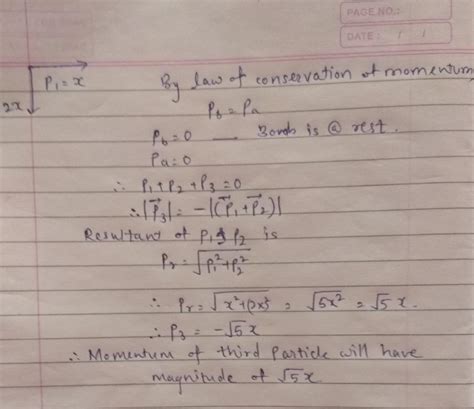 PAGE NO.:
DATE: / /
P₁ = x
2x
By law of conservation of momentum
P_b = P_a
P_b = 0 — Bomb is @ rest.
P_a = 0
∴ P₁ + P₂ + P₃ = 0
∴ |P⃗₃| = -|(P⃗₁ + P⃗₂)|
Resultant of P₁ & P₂ is
P_r = √(P₁² + P₂²)
∴ P_r = √(x² + (2x)²) = √(5x²) = √5 x.
∴ P₃ = -√5 x
∴ Momentum of third Particle will have
magnitude of √5 x